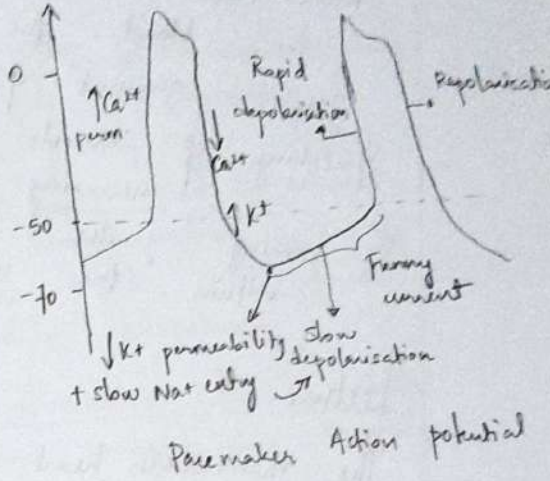 0
-50
-70
↑Ca²⁺
perm
↓
Ca²⁺
↑K⁺
Rapid
depolarisation
Repolarisatio
Funny
current
↓K+ permeability
+ slow Na+ entry
slow
depolarisation
Pacemaker Action potential